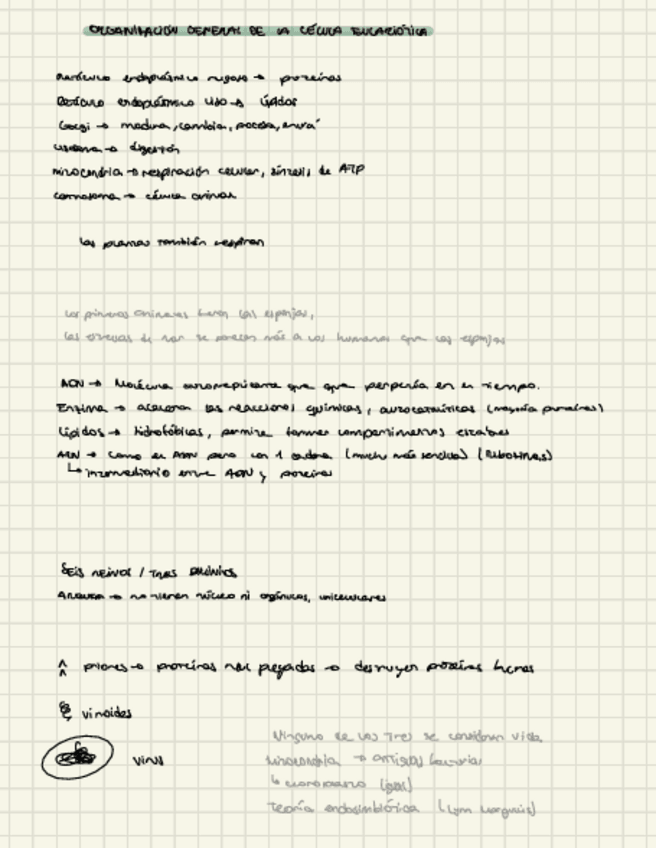 ORGANIZACIÓN GENERAL DE LA CÉLULA EUCARIÓTICA
Retículo endoplásmico rugoso → proteínas
Retículo endoplásmico liso → lípidos
Golgi → madura, cambia, procesa, envía
Lisosoma → digestión
mitocondria → respiración celular, síntesis de ATP
centrosoma → célula animal
las plantas también respiran
los primeros animales fueron las esponjas,
las estrellas de mar se parecen más a los humanos que las esponjas
ADN → Molécula autorreplicante que que perpetúa en el tiempo.
Enzima → aceleran las reacciones químicas, autocatalíticas (mayoría proteínas)
Lípidos → hidrofóbicas, permite formar compartimentos estables
ARN → como el ADN pero con 1 cadena (mucho más sencillo) (Ribosomas)
↳ intermediario entre ADN y proteínas
SEIS REINOS / TRES DOMINIOS
Arquea → no tienen núcleo ni orgánicos, unicelulares
priones → proteínas mal plegadas → destruyen proteínas buenas
viroides
virus
Ninguno de los tres se consideran vida
mitocondria → antiguas bacterias
↳ cloroplasto (igual)
Teoría endosimbiótica (Lynn Margulis)